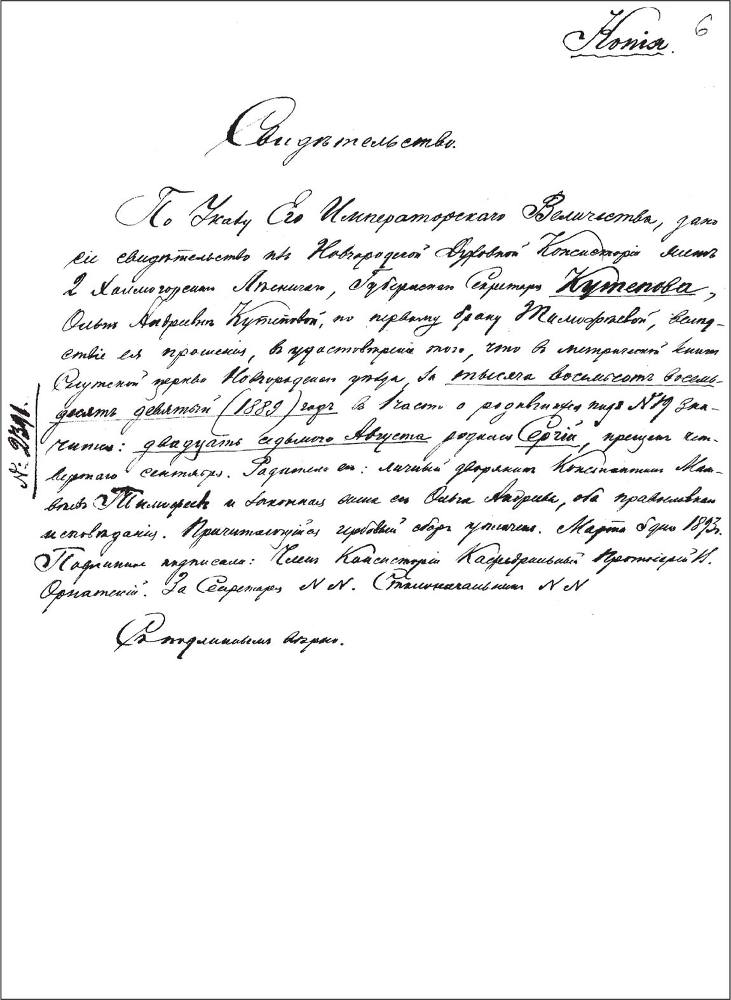 Копія.
6
Свидѣтельство.
По Указу Его Императорскаго Величества, дано
сіе свидѣтельство изъ Новгородской Духовной Консисторіи женѣ
2 Холмогорскаго Лѣсничаго, Губернскаго Секретаря Кутепова,
Ольгѣ Андреевнѣ Кутеповой, по первому браку Тимофеевой, вслѣд-
ствіе ея прошенія, въ удостовѣреніе того, что въ метрической книгѣ
церкви Новгородскаго уѣзда, за тысяча восемьсотъ восемь-
десятъ девятый (1889) годъ въ 1 части о родившихся подъ № 19 зна-
чится: двадцать седьмого Августа родился Сергій, крещенъ чет-
вертаго сентября. Родители его: личный дворянинъ Константинъ Мат-
вѣевъ Тимофеевъ и законная жена его Ольга Андреева, оба православнаго
исповѣданія. Причитающійся гербовый сборъ уплаченъ. Марта 5 дня 1893 г.
Подлинное подписали: Членъ Консисторіи Кафедральный Протоіерей
Орнатскій. За Секретаря N N. Столоначальникъ N N
Съ подлиннымъ вѣрно.
№ 2391.